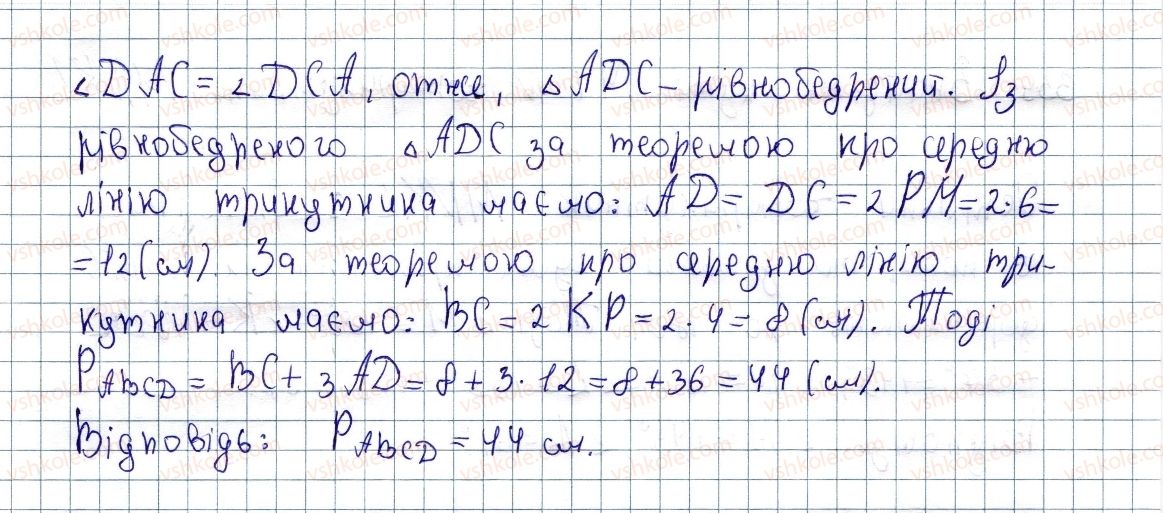 ∠DAC = ∠DCA, отже, △ADC – рівнобедрений. Із
рівнобедреного △ADC за теоремою про середню
лінію трикутника маємо: AD = DC = 2PM = 2·6 =
= 12 (см) За теоремою про середню лінію три-
кутника маємо: BC = 2KP = 2·4 = 8 (см). Тоді
P_ABCD = BC + 3AD = 8 + 3·12 = 8 + 36 = 44 (см).
Відповідь: P_ABCD = 44 см.